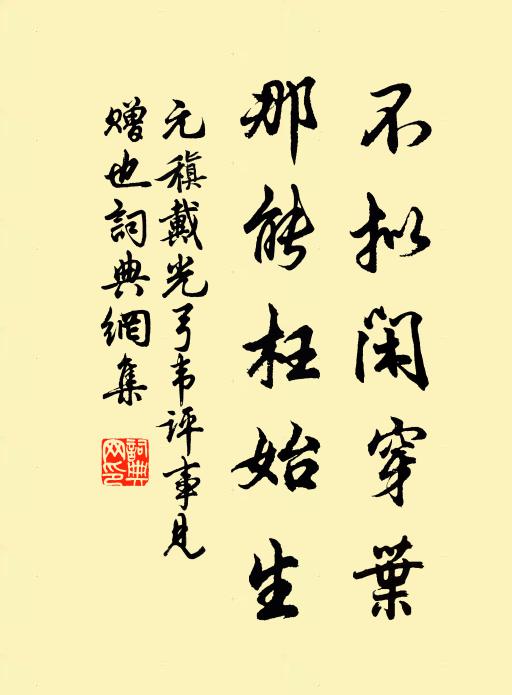 不拟闲穿葉
那能枉始生
元稹戴光弓韦评事见
赠也詞典網集
詞典网印